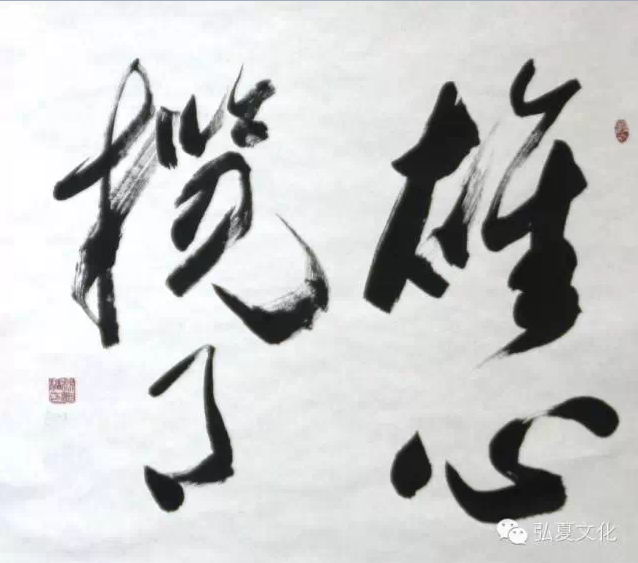 雄心
揽月
弘夏文化